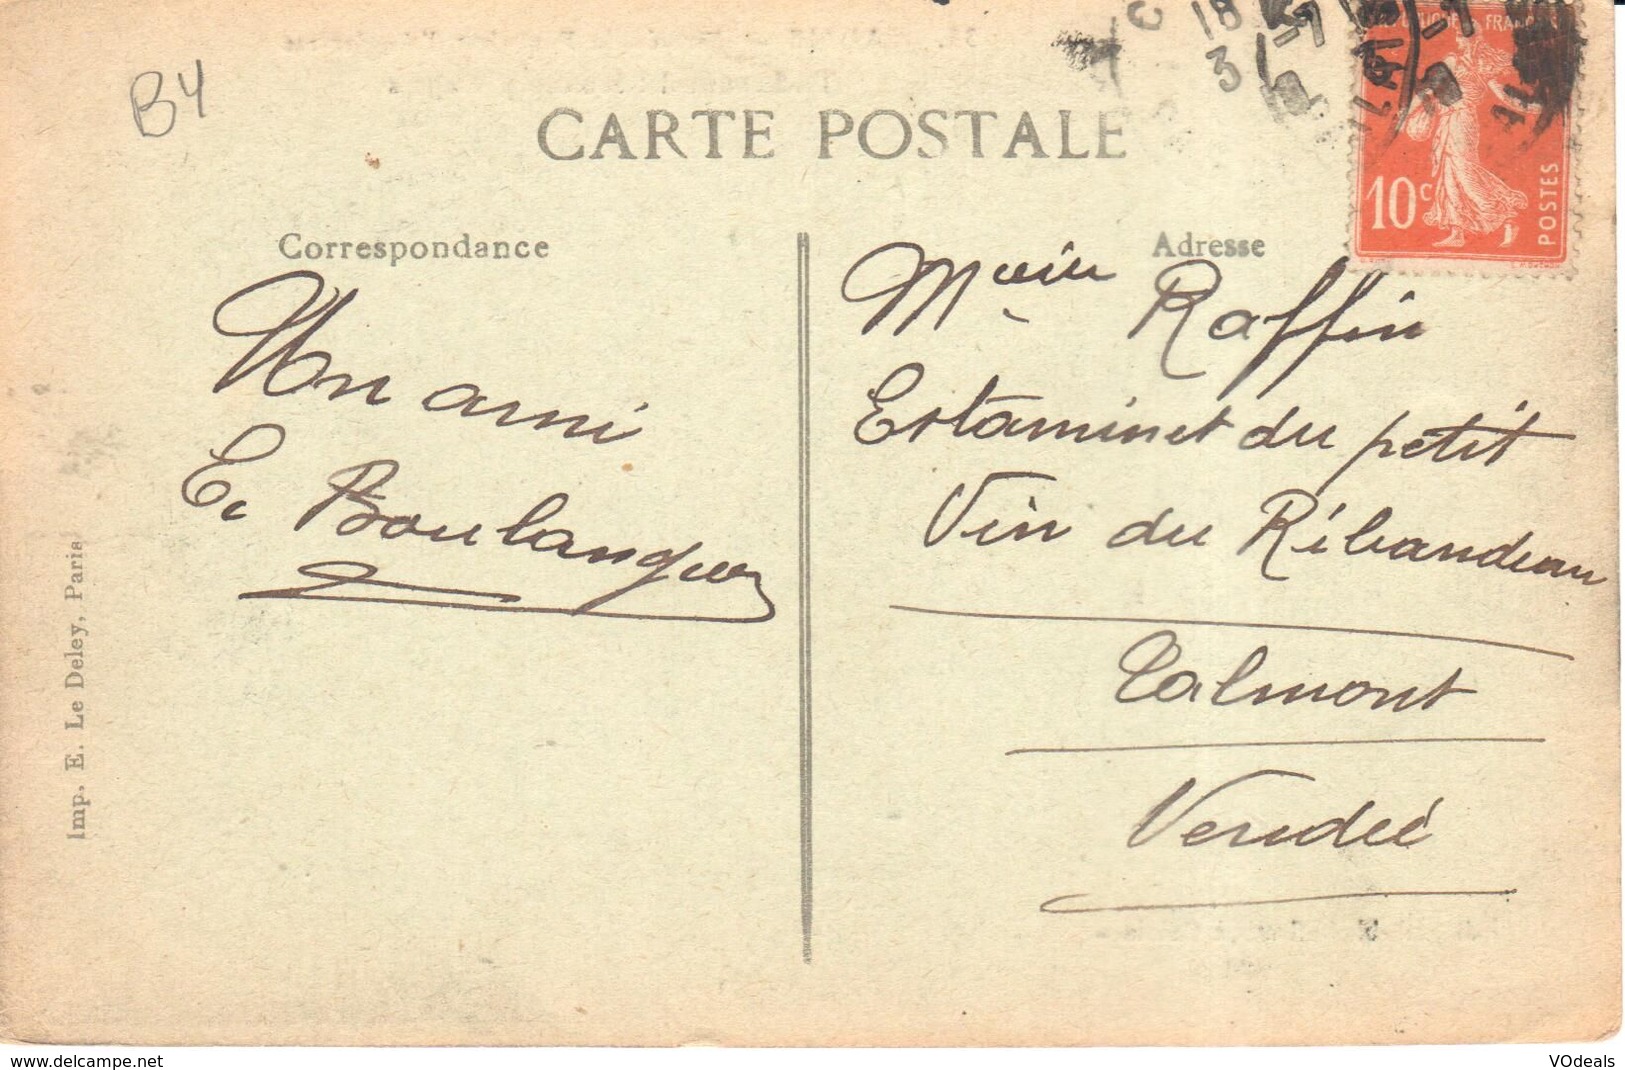 B4
CARTE POSTALE
RÉPUBLIQUE FRANÇAISE
10c
POSTES
Correspondance
Adresse
Mon ami
E. Boulanger
Raffin
Estaminet du petit
Vin du Ribandeau
Talmont
Vendée
Imp. E. Le Deley, Paris
www.delcampe.net
VOdeals